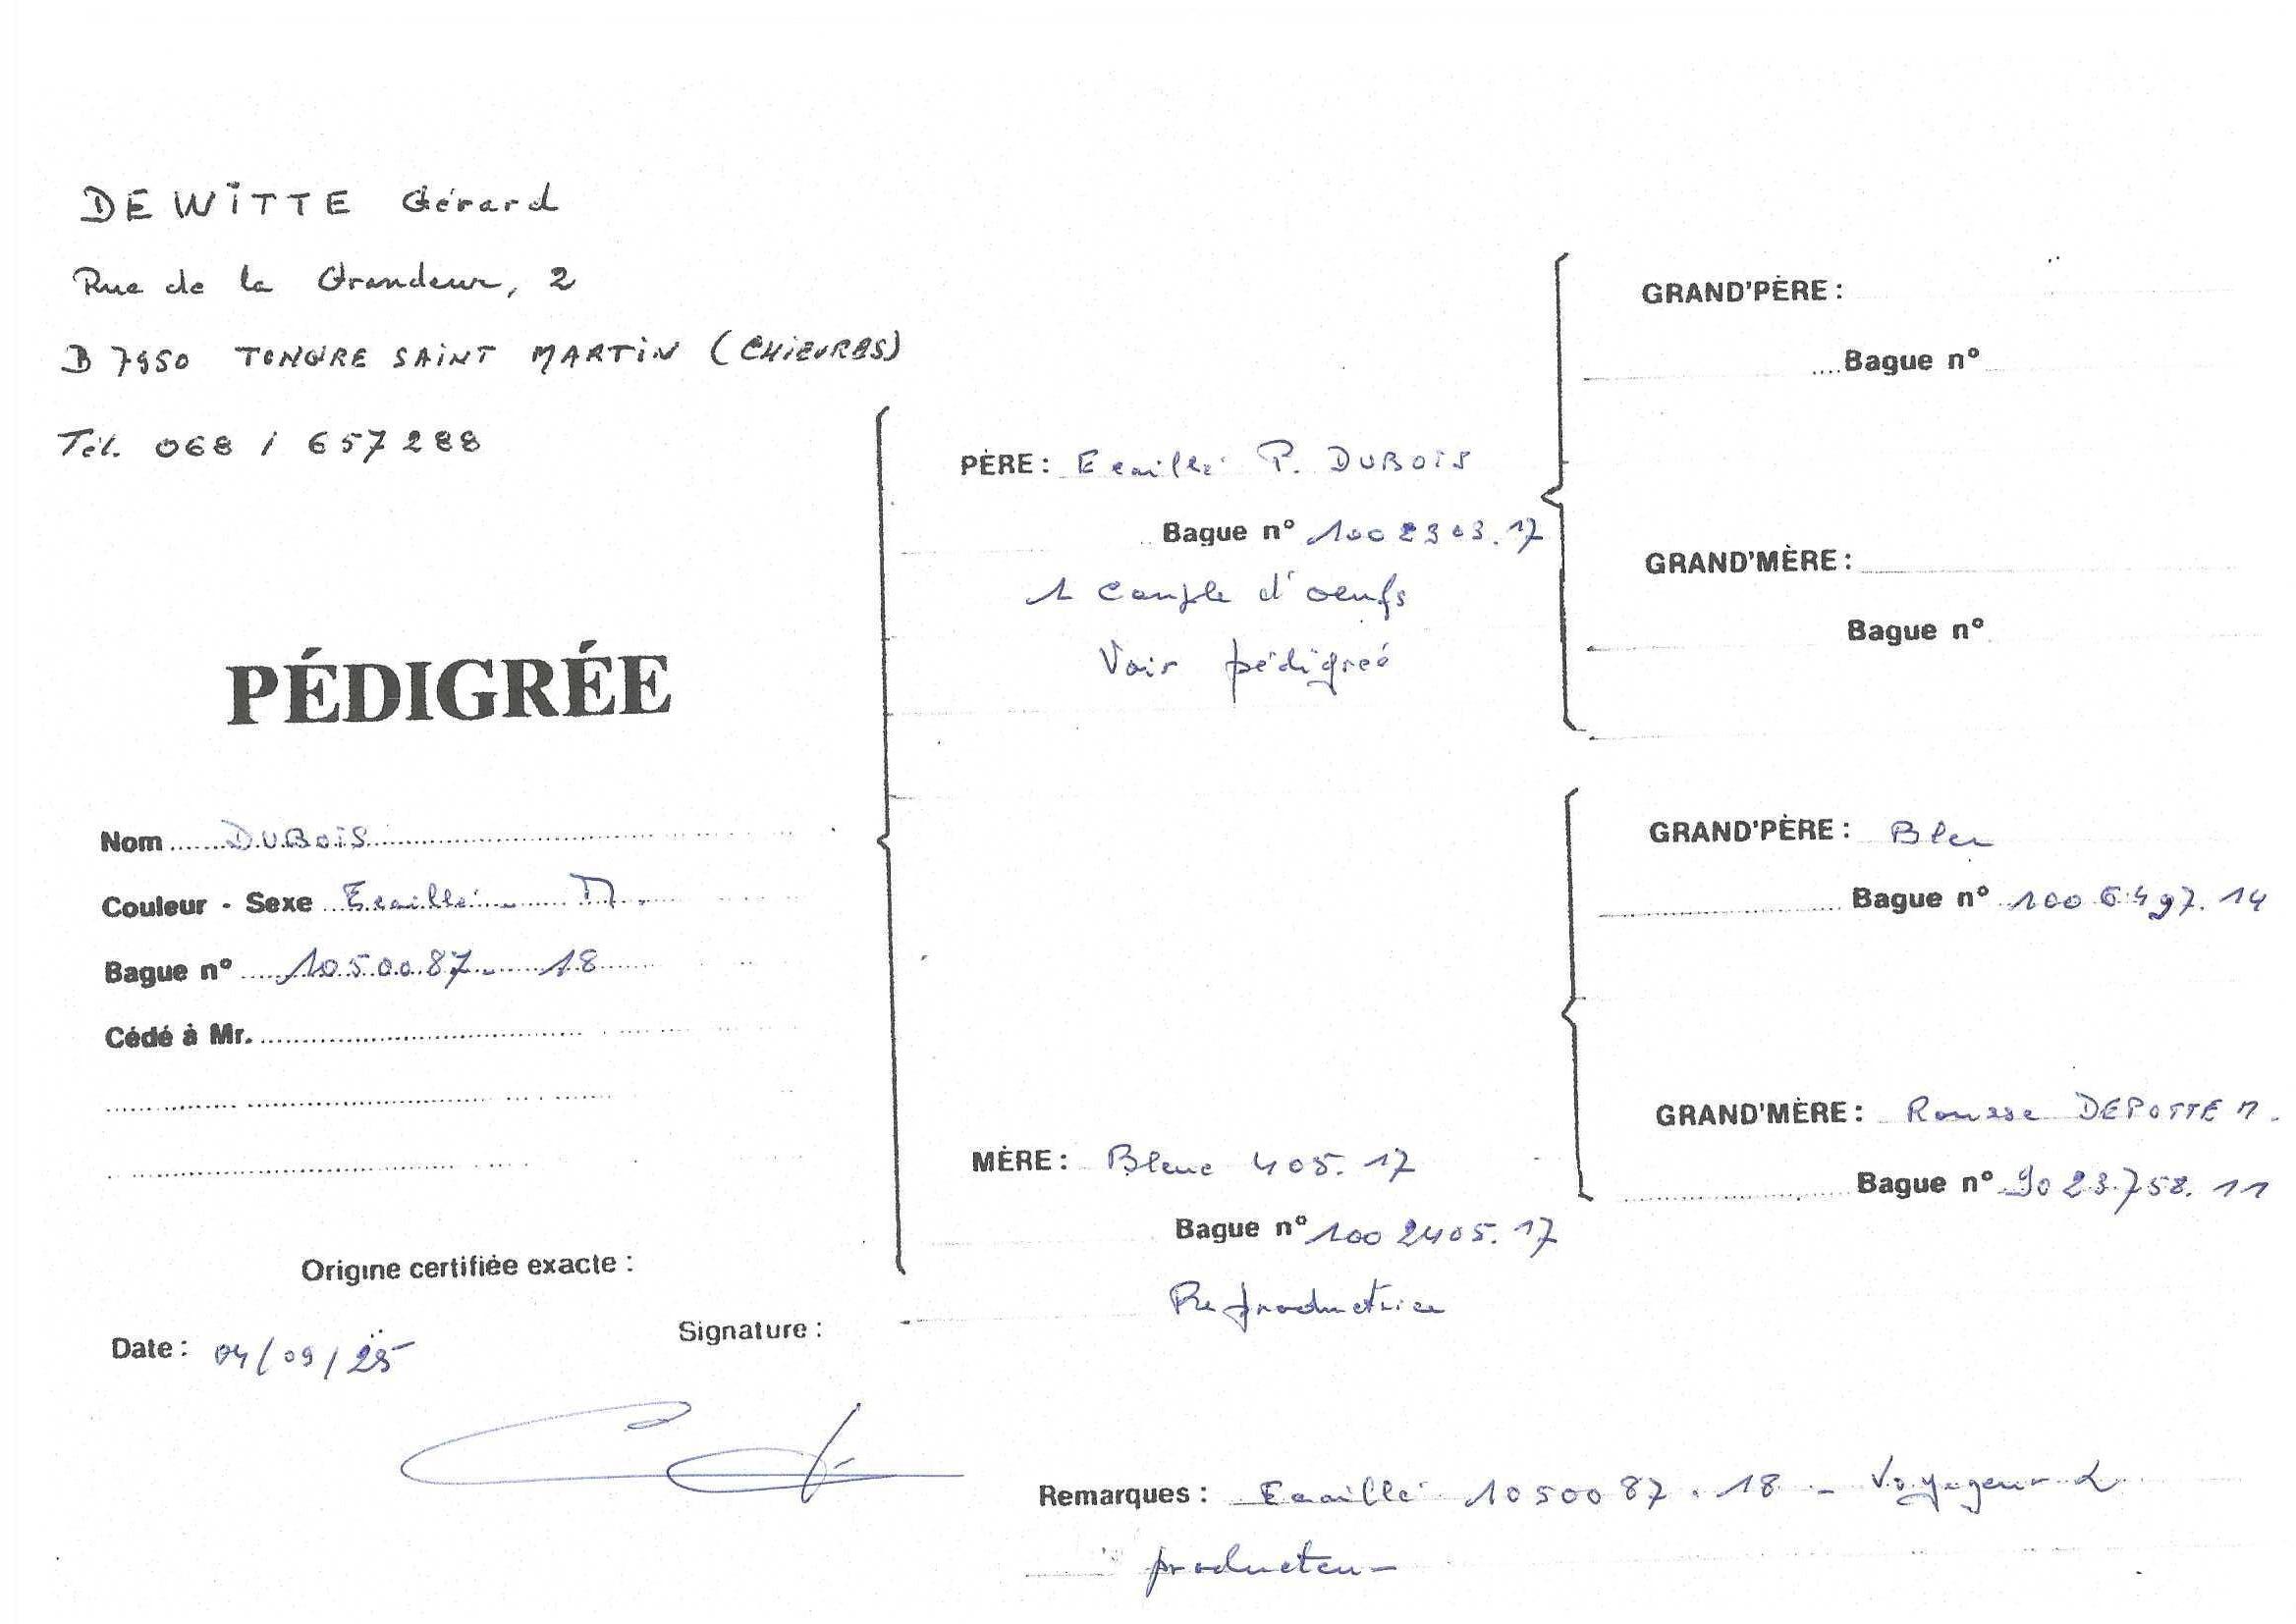 DEWITTE Gérard
Rue de la Grandeur, 2
B 7950 TONGRE SAINT MARTIN (CHIEVRES)
Tél. 068 / 657288
PÉDIGRÉE
Nom DUBOIS
Couleur - Sexe Ecaillé - M.
Bague n° 1050087 - 18
Cédé à Mr.
Origine certifiée exacte :
Date : 04/09/25
Signature :
PÈRE : Ecaillé P. DUBOIS
Bague n° 1002303.17
1 couple d'oeufs
Voir pédigreé
MÈRE : Bleue 405.17
Bague n° 1002405.17
Reproductrice
GRAND'PÈRE :
Bague n°
GRAND'MÈRE :
Bague n°
GRAND'PÈRE : Bleu
Bague n° 1006497.14
GRAND'MÈRE : Rousse DEPOTTE M.
Bague n° 9023758.11
Remarques : Ecaillé 1050087.18 - Voyageur &
producteur